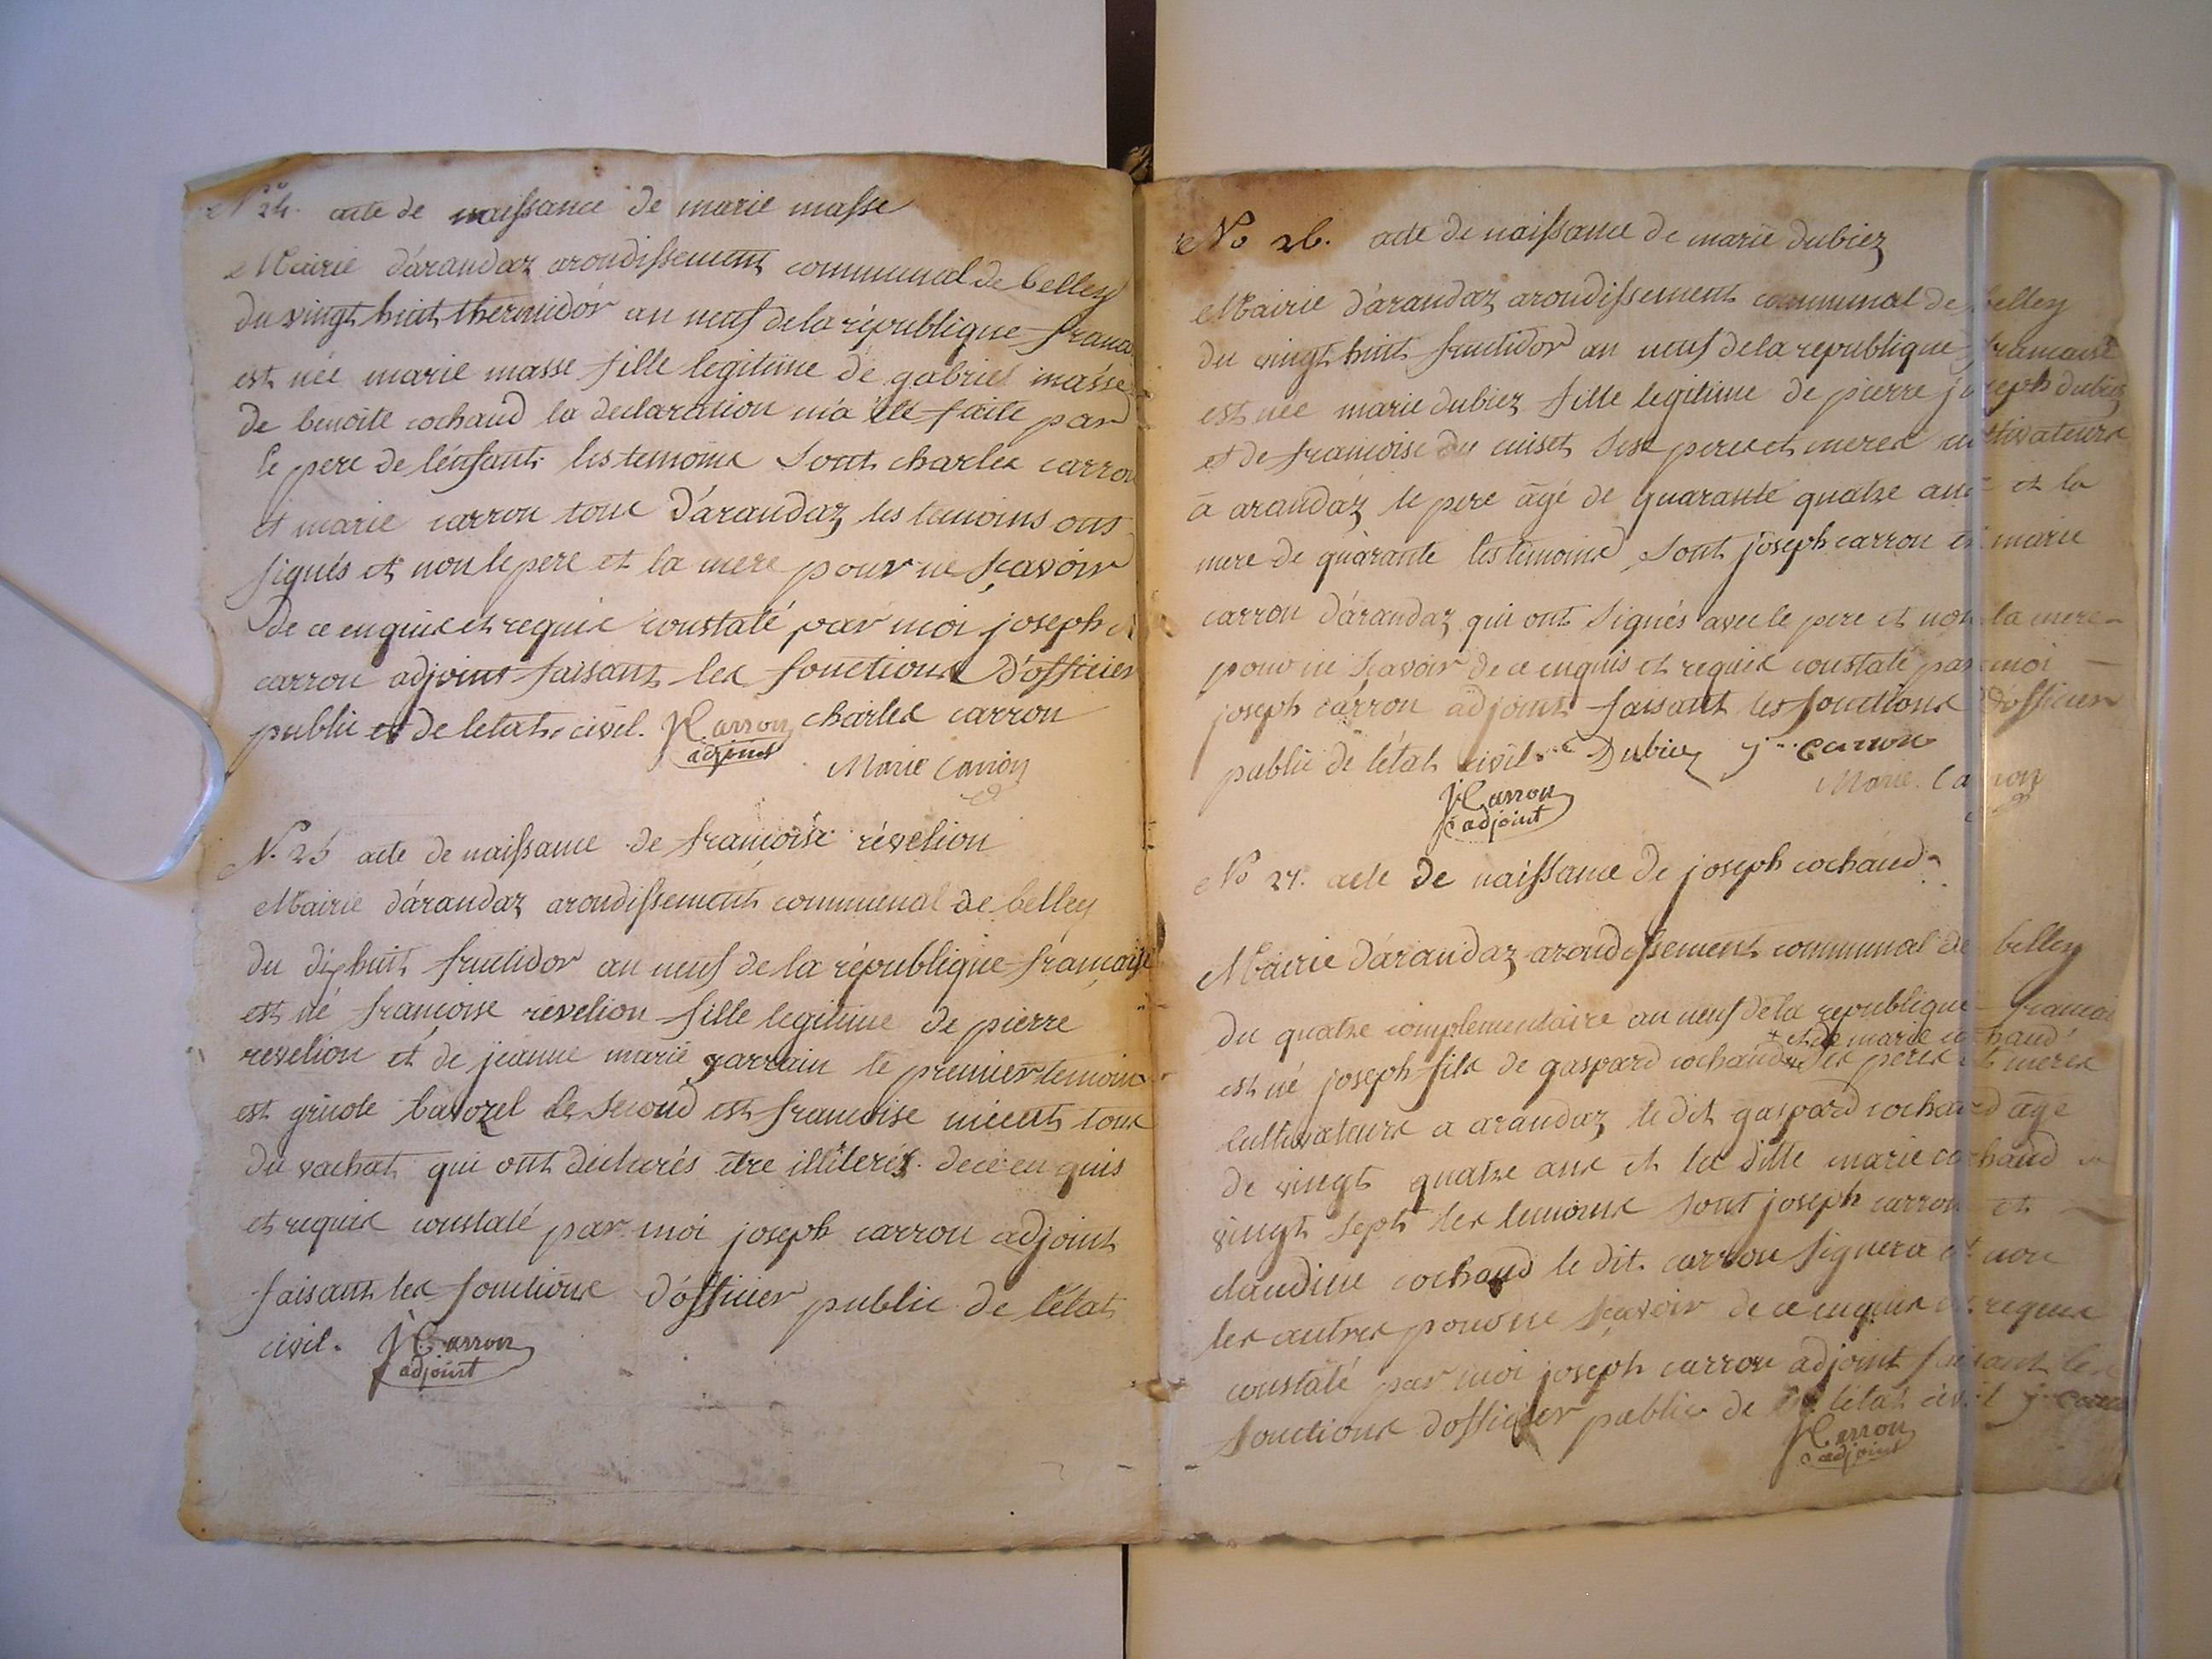 N° 24. acte de naissance de marie masse
Mairie d'arandaz arondissement communal de belley
du vingt huit thermidor an neuf de la république franca
est née marie masse fille legitime de gabriel masse
de benoite cochaud la declaration m'a été faite par
le pere de l'enfant les temoins sont charles carron
et marie carron tous d'arandaz les temoins ont
signés et non le pere et la mere pour ne sçavoir
de ce enquis et requis constaté par moi joseph
carron adjoint faisant les fonctions d'officier
public et de letat civil. J Carron charles carron
adjoint
Marie Carron
N. 25 acte de naissance de francoise révelion
Mairie d'arandaz arondissement communal de belley
du dixhuit fructidor an neuf de la république française
est né françoise revelion fille legitime de pierre
revelion et de jeanne marie garrain le premier temoin
est bavozel le second est francoise tous
du vachat qui ont declarés être illiterés. de ce en quis
et requis constaté par moi joseph carron adjoint
faisant les fonctions d'officier public de l'état
civil. J Carron
adjoint
No 26. acte de naissance de marie dubiez
Mairie d'arandaz arondissement communal de belley
du vingt huit fructidor an neuf de la republique francaise
est née marie dubiez fille legitime de pierre joseph dubiez
et de francoise du cuiset ses peres et meres cultivateurs
à arandaz le pere âgé de quarante quatre ans et la
mere de quarante les temoins sont joseph carron et marie
carron d'arandaz qui ont signés avec le pere et non la mere
pour ne sçavoir de ce enquis et requis constaté par moi
joseph carron adjoint faisant les fonctions d'officier
public de l'état civil Dubiez j carron
Marie Carron
J Carron
adjoint
No 27. acte de naissance de joseph cochaud
Mairie d'arandaz arondissement communal de belley
du quatre complementaire an neuf de la republique francai
+ et de marie cochaud
est né joseph fils de gaspard cochaud + ses peres et meres
cultivateurs a arandaz le dit gaspard cochaud âgé
de vingt quatre ans et la ditte marie cochaud
vingt sept les temoins sont joseph carron et
claudine cochaud le dit carron signera et non
les autres pour ne sçavoir de ce enquis et requis
constaté par moi joseph carron adjoint faisant les
fonctions d'officier public de l'état civil j carron
J Carron
adjoint